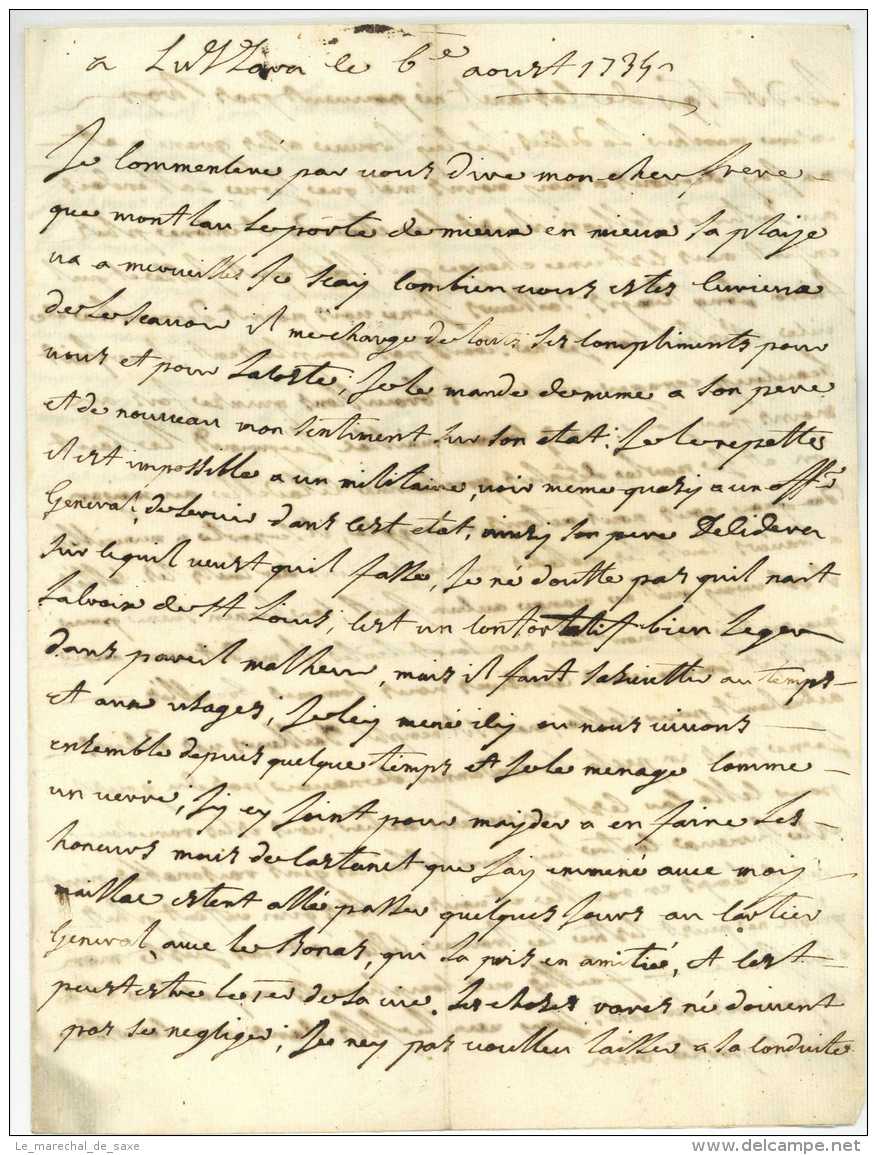 a Luzzara le 6e aoust 1735
Je Commenceré par vous dire mon cher frere
que montlau se porte de mieux en mieux sa plaije
va a merveilles Je scay Combien vous estes Curieux
de le scavoir il me charge de tous ses Compliments pour
vous et pour Lacoste; Je le mande de meme a son pere
et de nouveau mon sentiment sur son etat. Je le repettes
il est impossible a un militaire, voir meme quasy a un offr
General, de servir dans cest etat, ainsy son pere Deliderer
sur le quil veust quil fasse, Je né doutte pas quil nait
La Croix de st Louis, cest un Confortatif bien Leger
dans pareil malheur, mais il faut sassuiettir au temps
et aux usages; Je lay mené icy ou nous vivons
ensemble depuis quelque temps et Je le menage Comme
un verre; Jy ey Joint pour mayder a en faire Les
honeurs mais de Castanet que Jay emmené avec moy
maillac estent allé passer quelques Jours au Cartier
General, avec le Bonas, qui La pris en amitié, et cest
peust estre le 1er de sa vie. Les choses rares né doivent
pas se negliger; Je ney pas voullu laisser a la Conduite
Le_marechal_de_saxe
www.delcampe.net